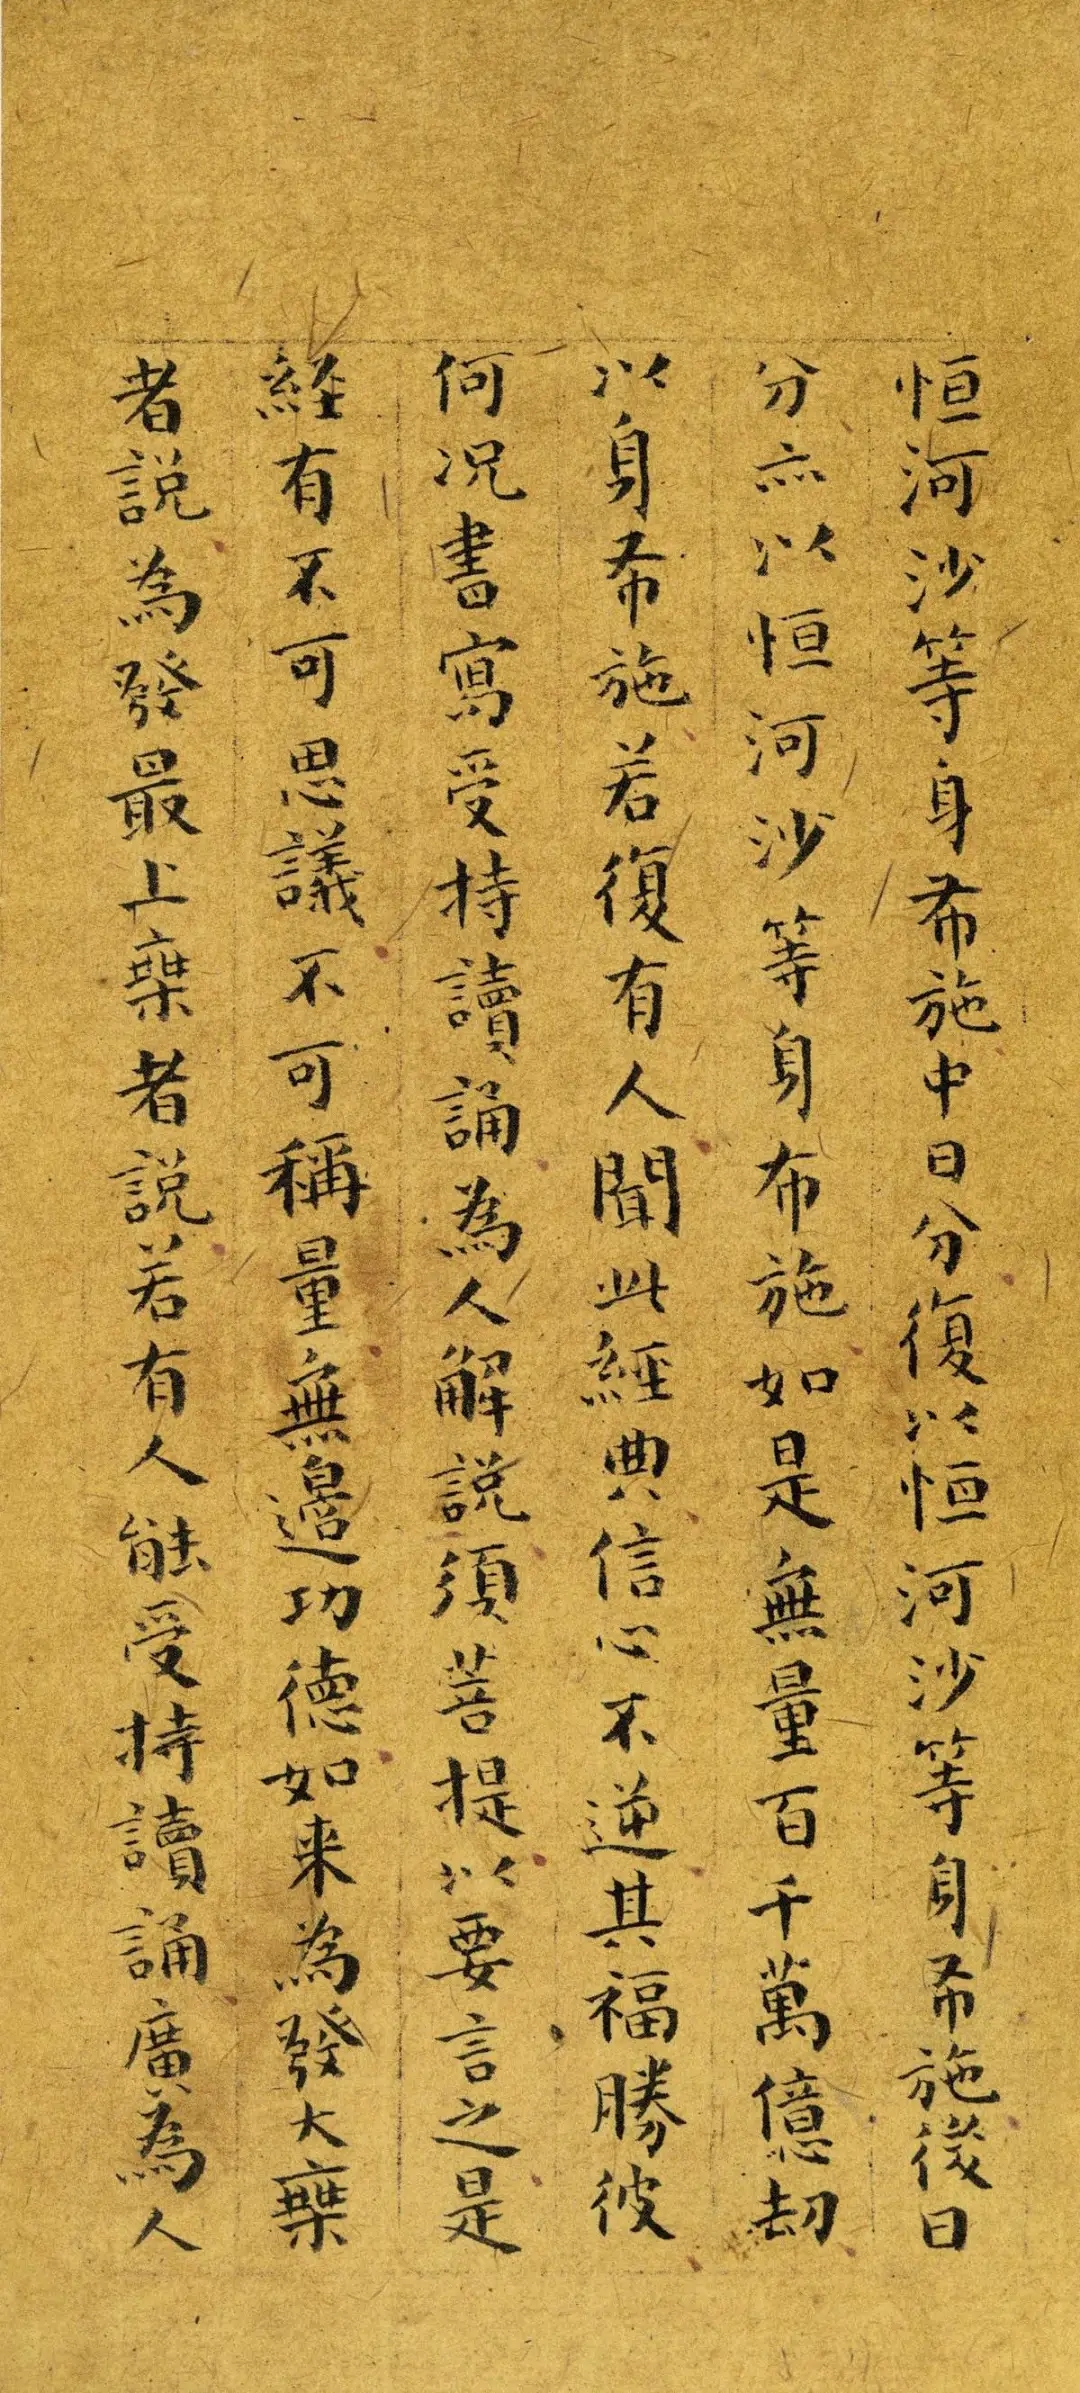 恒河沙等身布施中日分復以恒河沙等身布施後日
分亦以恒河沙等身布施如是無量百千萬億劫
以身布施若復有人聞此經典信心不逆其福勝彼
何況書寫受持讀誦為人解說須菩提以要言之是
經有不可思議不可稱量無邊功德如来為發大乗
者說為發最上乗者說若有人能受持讀誦廣為人